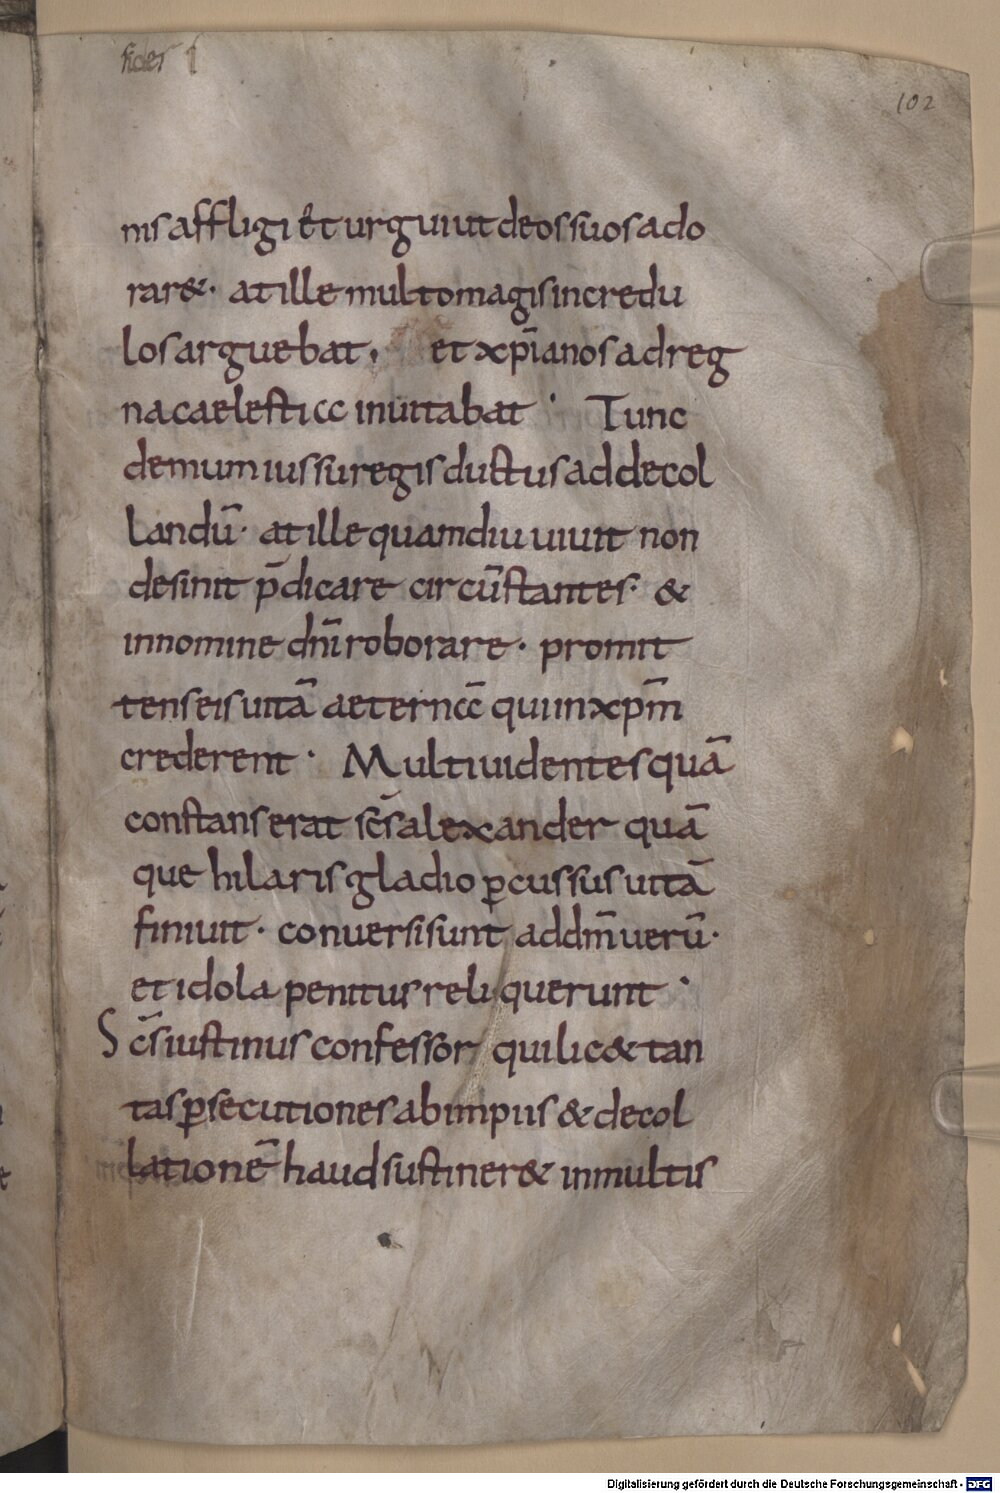 fides
102
nis affligi & urguiut deos suos ado
rar&. at ille multo magis incredu
los arguebat, et xp̄ianos ad reg
na caelestica inuitabat. Tunc
demum iussu regis ductus ad decol
landū. at ille quamdiu uiuit non
desinit p̄dicare circūstantes. &
in nomine dn̄i roborare. promit
tens eis uitā aeternā qui in xp̄m
crederent. Multi uidentes quā
constans erat sc̄s alexander quā
que hilaris gladio ꝑcussus uitā
finiuit. conuersi sunt ad dm̄ uerū.
et idola penitus reliquerunt.
Sc̄s iustinus confessor qui lic& tan
tas ꝑsecutiones ab impiis & decol
lationē haud sustiner& in multis
Digitalisierung gefördert durch die Deutsche Forschungsgemeinschaft - DFG